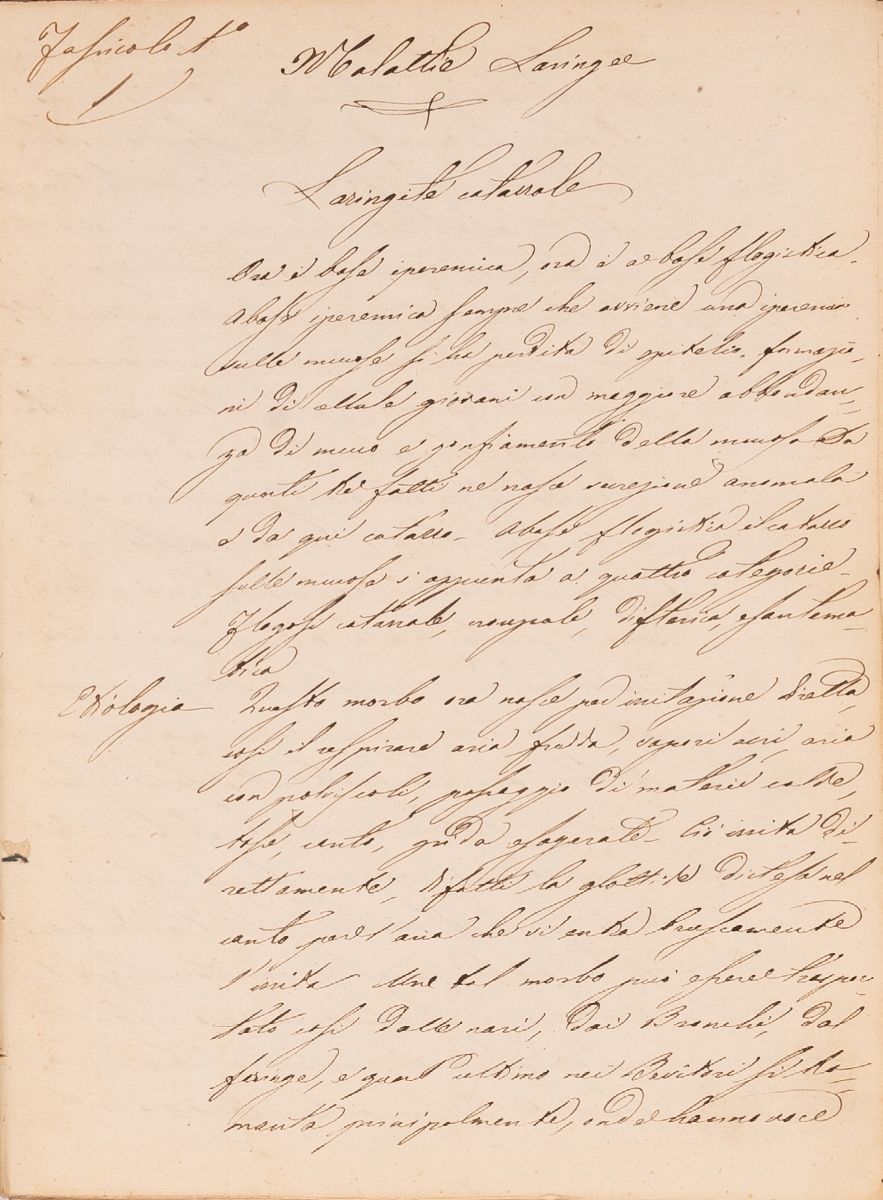 Fascicolo 1º
1
Malattie Laringee
Laringite catarrale
Ora è base iperemica, ora è a base flogistica.
A base iperemica sempre che avviene una iperemia
sulle mucose si ha perdita di epitelio, formazio-
ni di cellule giovani con maggiore abbondan-
za di muco e gonfiamento della mucosa. Da
questi tre fatti ne nasce secrezione anomala
e da qui catarro. A base flogistica il catarro
sulle mucose s'appunta a quattro categorie.
Flogosi catarrale, crupale, difterica, esantema-
tica
Etiologia Questo morbo ora nasce per irritazione diretta,
così il respirare aria fredda, vapori acri, aria
con polviscoli, passaggio di materie calde,
tosse, canto, grida esagerate. Ciò irrita di-
rettamente, difatti la glottide distesa nel
canto per l'aria che vi entra bruscamente
l'irrita. Une tal morbo può essere traspor-
tato così dalle nari, dai Bronchi, dal
faringe, e quest'ultimo nei Bevitori si la-
menta principalmente, onde hanno voce